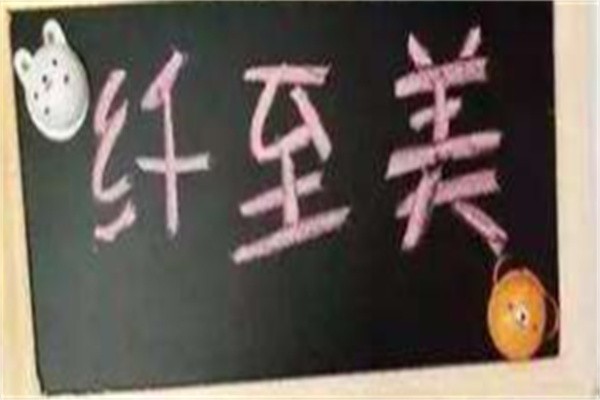 纤至美